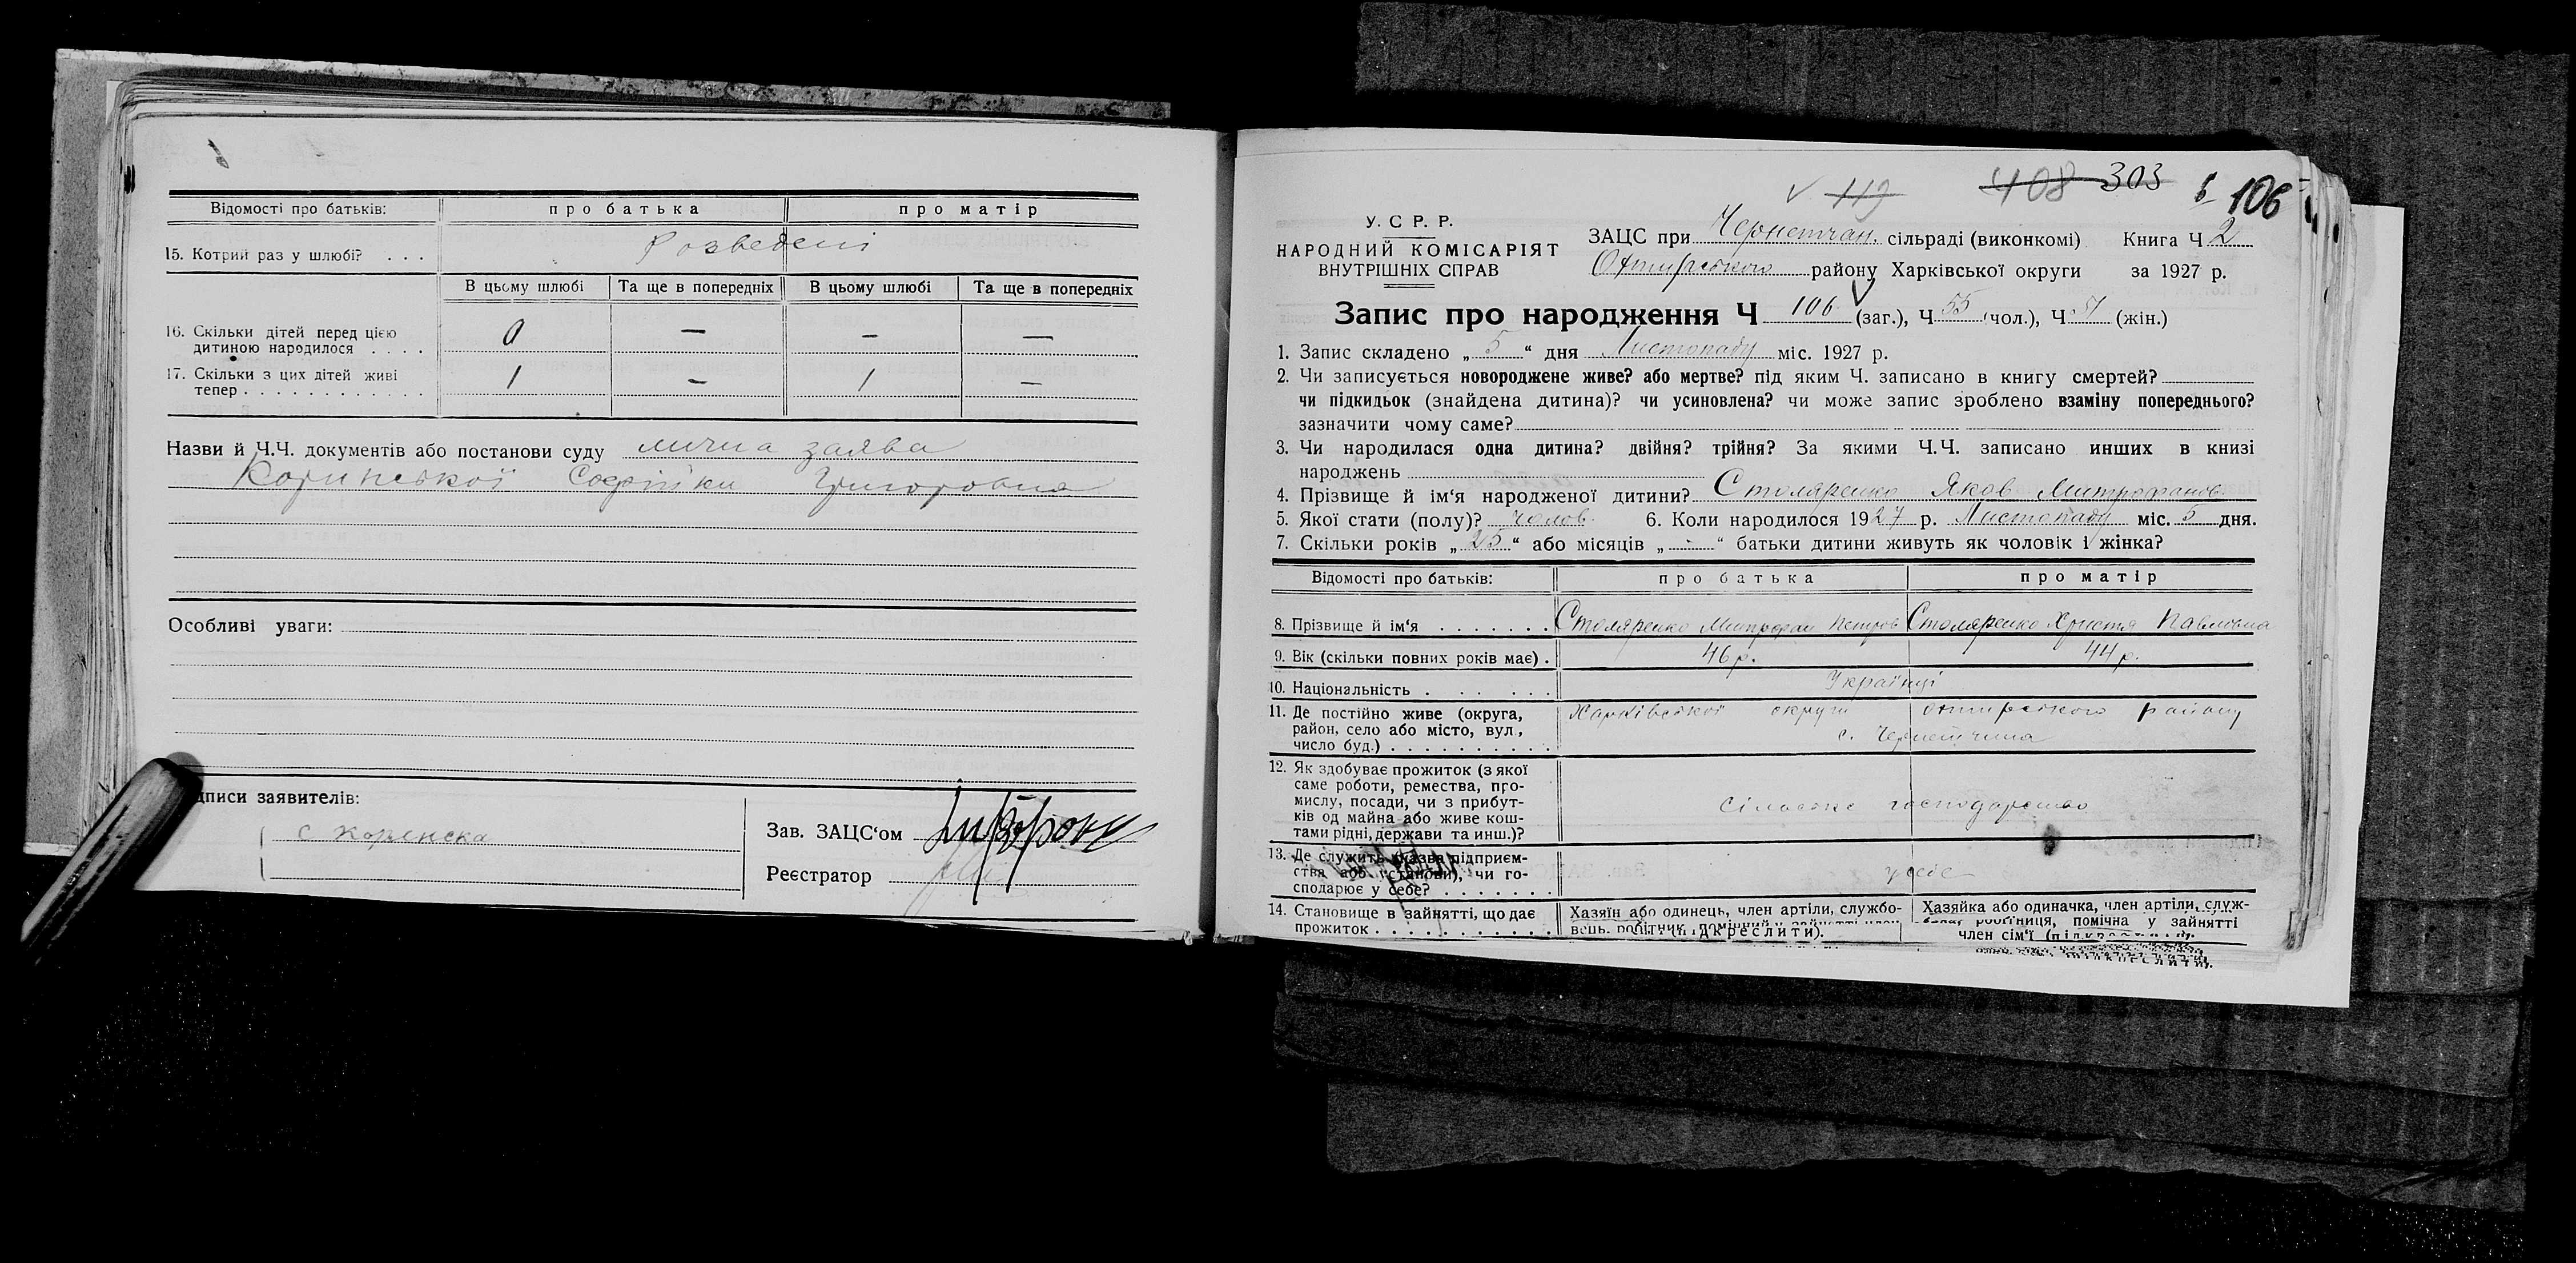 Відомості про батьків: про батька про матір
15. Котрий раз у шлюбі? . . . Розведені
В цьому шлюбі Та ще в попередніх В цьому шлюбі Та ще в попередніх
16. Скільки дітей перед цією
дитиною народилося . . . . 0 — — —
17. Скільки з цих дітей живі
тепер . . . . . . . . . . . . 1 — 1 —
Назви й Ч.Ч. документів або постанови суду лична заява
Софійки Григоровна
Особливі уваги:
писи заявителів:
Зав. ЗАЦС‘ом
Реєстратор
119 408 303 106
У. С. Р. Р.
НАРОДНИЙ КОМІСАРІЯТ
ВНУТРІШНІХ СПРАВ
ЗАЦС при Чернетчан. сільраді (виконкомі) Книга Ч 2
Охтирського району Харківської округи за 1927 р.
Запис про народження Ч 106 (заг.), Ч 55 (чол.), Ч 51 (жін.)
1. Запис складено „ 5 “ дня Листопаду міс. 1927 р.
2. Чи записується новороджене живе? або мертве? під яким Ч. записано в книгу смертей?
чи підкидьок (знайдена дитина)? чи усиновлена? чи може запис зроблено взаміну попереднього?
зазначити чому саме?
3. Чи народилася одна дитина? двійня? трійня? За якими Ч.Ч. записано инших в книзі
народжень
4. Прізвище й ім‘я народженої дитини? Столяренко Яков Митрофанов
5. Якої стати (полу)? чолов. 6. Коли народилося 1927 р. Листопаду міс. 5 дня.
7. Скільки років „ 25 “ або місяців „ - “ батьки дитини живуть як чоловік і жінка?
Відомості про батьків: про батька про матір
8. Прізвище й ім‘я . . . . . . . Столяренко Митрофан Петров Столяренко Христя Павловна
9. Вік (скільки повних років має) . 46 р. 44 р.
10. Національність . . . . . Українці
11. Де постійно живе (округа, Харківської округи Охтирського району
район, село або місто, вул., с. Чернетчина
число буд.) . . . . . . . . . .
12. Як здобуває прожиток (з якої
саме роботи, ремества, про-
мислу, посади, чи з прибут-
ків од майна або живе кош- сільське господарство
тами рідні, держави та инш.)?
13. Де служить (назва підприєм-
ства або установи), чи го- у себе
сподарює у себе? . . . . . . .
14. Становище в зайнятті, що дає Хазяїн або одинець, член артіли, службо- Хазяйка або одиначка, член артіли, служ-
прожиток . . . . . . . . . . . вець, робітник, (підкреслити). робітниця, помічна у зайнятті
член сім‘ї